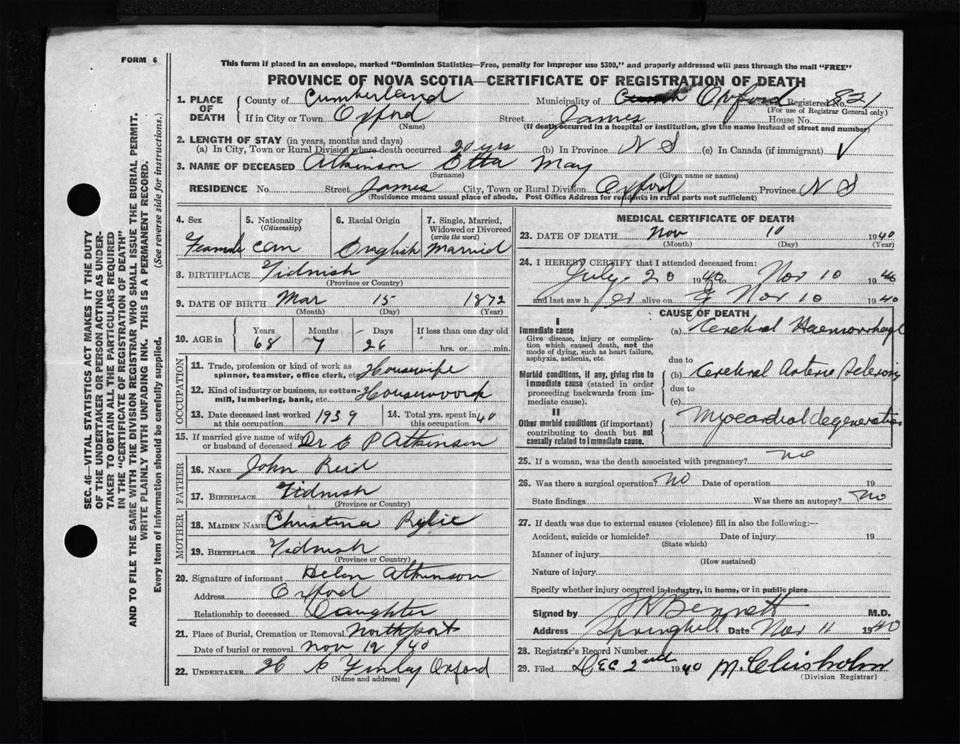 FORM 6
This form if placed in an envelope, marked "Dominion Statistics—Free, penalty for improper use $300," and properly addressed will pass through the mail "FREE"
PROVINCE OF NOVA SCOTIA—CERTIFICATE OF REGISTRATION OF DEATH
1. PLACE OF DEATH County of Cumberland Municipality of Oxford Registered No. 821
(For use of Registrar General only)
If in City or Town Oxford Street James House No.
(Name) (If death occurred in a hospital or institution, give the name instead of street and number)
2. LENGTH OF STAY (in years, months and days)
(a) In City, Town or Rural Division where death occurred 20 yrs (b) In Province N S (c) In Canada (if immigrant)
3. NAME OF DECEASED Atkinson Etta May
(Surname) (Given name or names)
RESIDENCE No. Street James City, Town or Rural Division Oxford Province N S
(Residence means usual place of abode. Post Office Address for residents in rural parts not sufficient)
4. Sex 5. Nationality (Citizenship) 6. Racial Origin 7. Single, Married, Widowed or Divorced (write the word)
Female Can English Married
8. BIRTHPLACE Tidnish
(Province or Country)
9. DATE OF BIRTH Mar 15 1872
(Month) (Day) (Year)
10. AGE in Years Months Days If less than one day old
68 7 26 hrs. or min.
OCCUPATION
11. Trade, profession or kind of work as spinner, teamster, office clerk, etc. Housewife
12. Kind of industry or business, as cotton mill, lumbering, bank, etc. Housework
13. Date deceased last worked at this occupation 1939 14. Total yrs. spent in this occupation 40
15. If married give name of wife or husband of deceased Dr E P Atkinson
FATHER
16. NAME John Reid
17. BIRTHPLACE Tidnish
(Province or Country)
MOTHER
18. MAIDEN NAME Christina
19. BIRTHPLACE Tidnish
(Province or Country)
20. Signature of informant Helen Atkinson
Address Oxford
Relationship to deceased Daughter
21. Place of Burial, Cremation or Removal Northport
Date of burial or removal Nov 12 1940
22. UNDERTAKER Oxford
(Name and address)
MEDICAL CERTIFICATE OF DEATH
23. DATE OF DEATH Nov 10 1940
(Month) (Day) (Year)
24. I HEREBY CERTIFY that I attended deceased from:
July 20 1940 to Nov 10 1940
and last saw her alive on Nov 10 1940
CAUSE OF DEATH
I
Immediate cause
Give disease, injury or complication which caused death, not the mode of dying, such as heart failure, asphyxia, asthenia, etc.
(a) Cerebral Haemorrhage
due to
Morbid conditions, if any, giving rise to immediate cause (stated in order proceeding backwards from immediate cause).
(b) Cerebral Arterio Sclerosis
due to
(c)
II
Other morbid conditions (if important) contributing to death but not causally related to immediate cause.
Myocardial degeneration
25. If a woman, was the death associated with pregnancy? no
26. Was there a surgical operation No Date of operation 19
State findings Was there an autopsy? No
27. If death was due to external causes (violence) fill in also the following:—
Accident, suicide or homicide? Date of injury 19
(State which)
Manner of injury
(How sustained)
Nature of injury
Specify whether injury occurred in industry, in home, or in public place
Signed by Bennett M.D.
Address Springhill Date Nov 11 1940
28. Registrar's Record Number
29. Filed Dec 2nd 1940 M. Chisholm
(Division Registrar)
SEC. 46—VITAL STATISTICS ACT MAKES IT THE DUTY
OF THE UNDERTAKER OR PERSON ACTING AS UNDER-
TAKER TO OBTAIN ALL THE PARTICULARS REQUIRED
IN THE "CERTIFICATE OF REGISTRATION OF DEATH"
AND TO FILE THE SAME WITH THE DIVISION REGISTRAR WHO SHALL ISSUE THE BURIAL PERMIT.
WRITE PLAINLY WITH UNFADING INK. THIS IS A PERMANENT RECORD.
Every item of information should be carefully supplied. (See reverse side for instructions.)